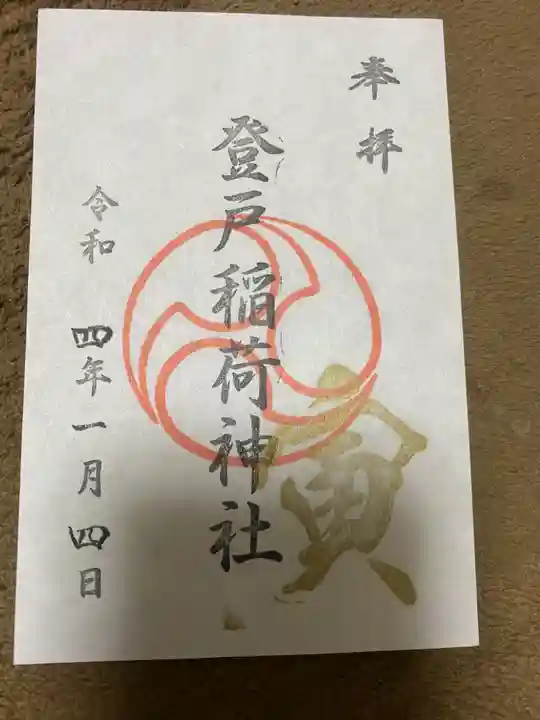 奉拝
登戸稲荷神社
寅
令和 四年一月四日